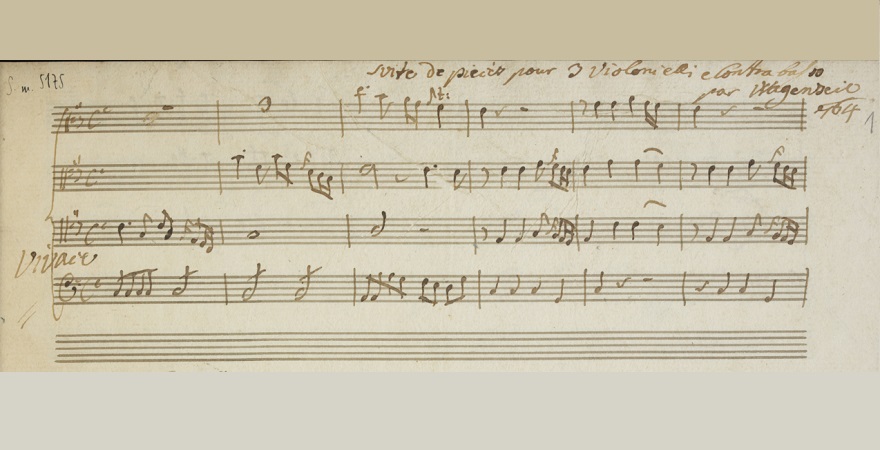 S. m. 5175
Suite de pieces pour 3 Violoncelli e Contra basso
par Wagenseil
1764
1
Vivace